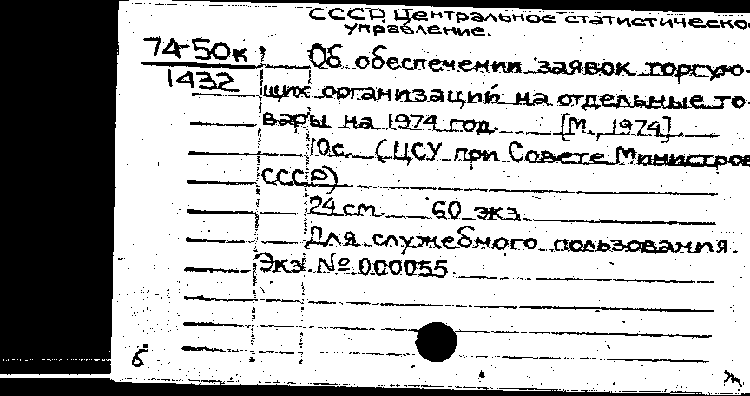 СССР. Центральное статистическо
управление.
74-50к
1432
Об обеспечении заявок торгую-
щих организаций на отдельные то-
вары на 1974 год. [М., 1974].
10с. (ЦСУ при Совете Министров
СССР)
24 см. 60 экз.
Для служебного пользования.
Экз. № 000055
б